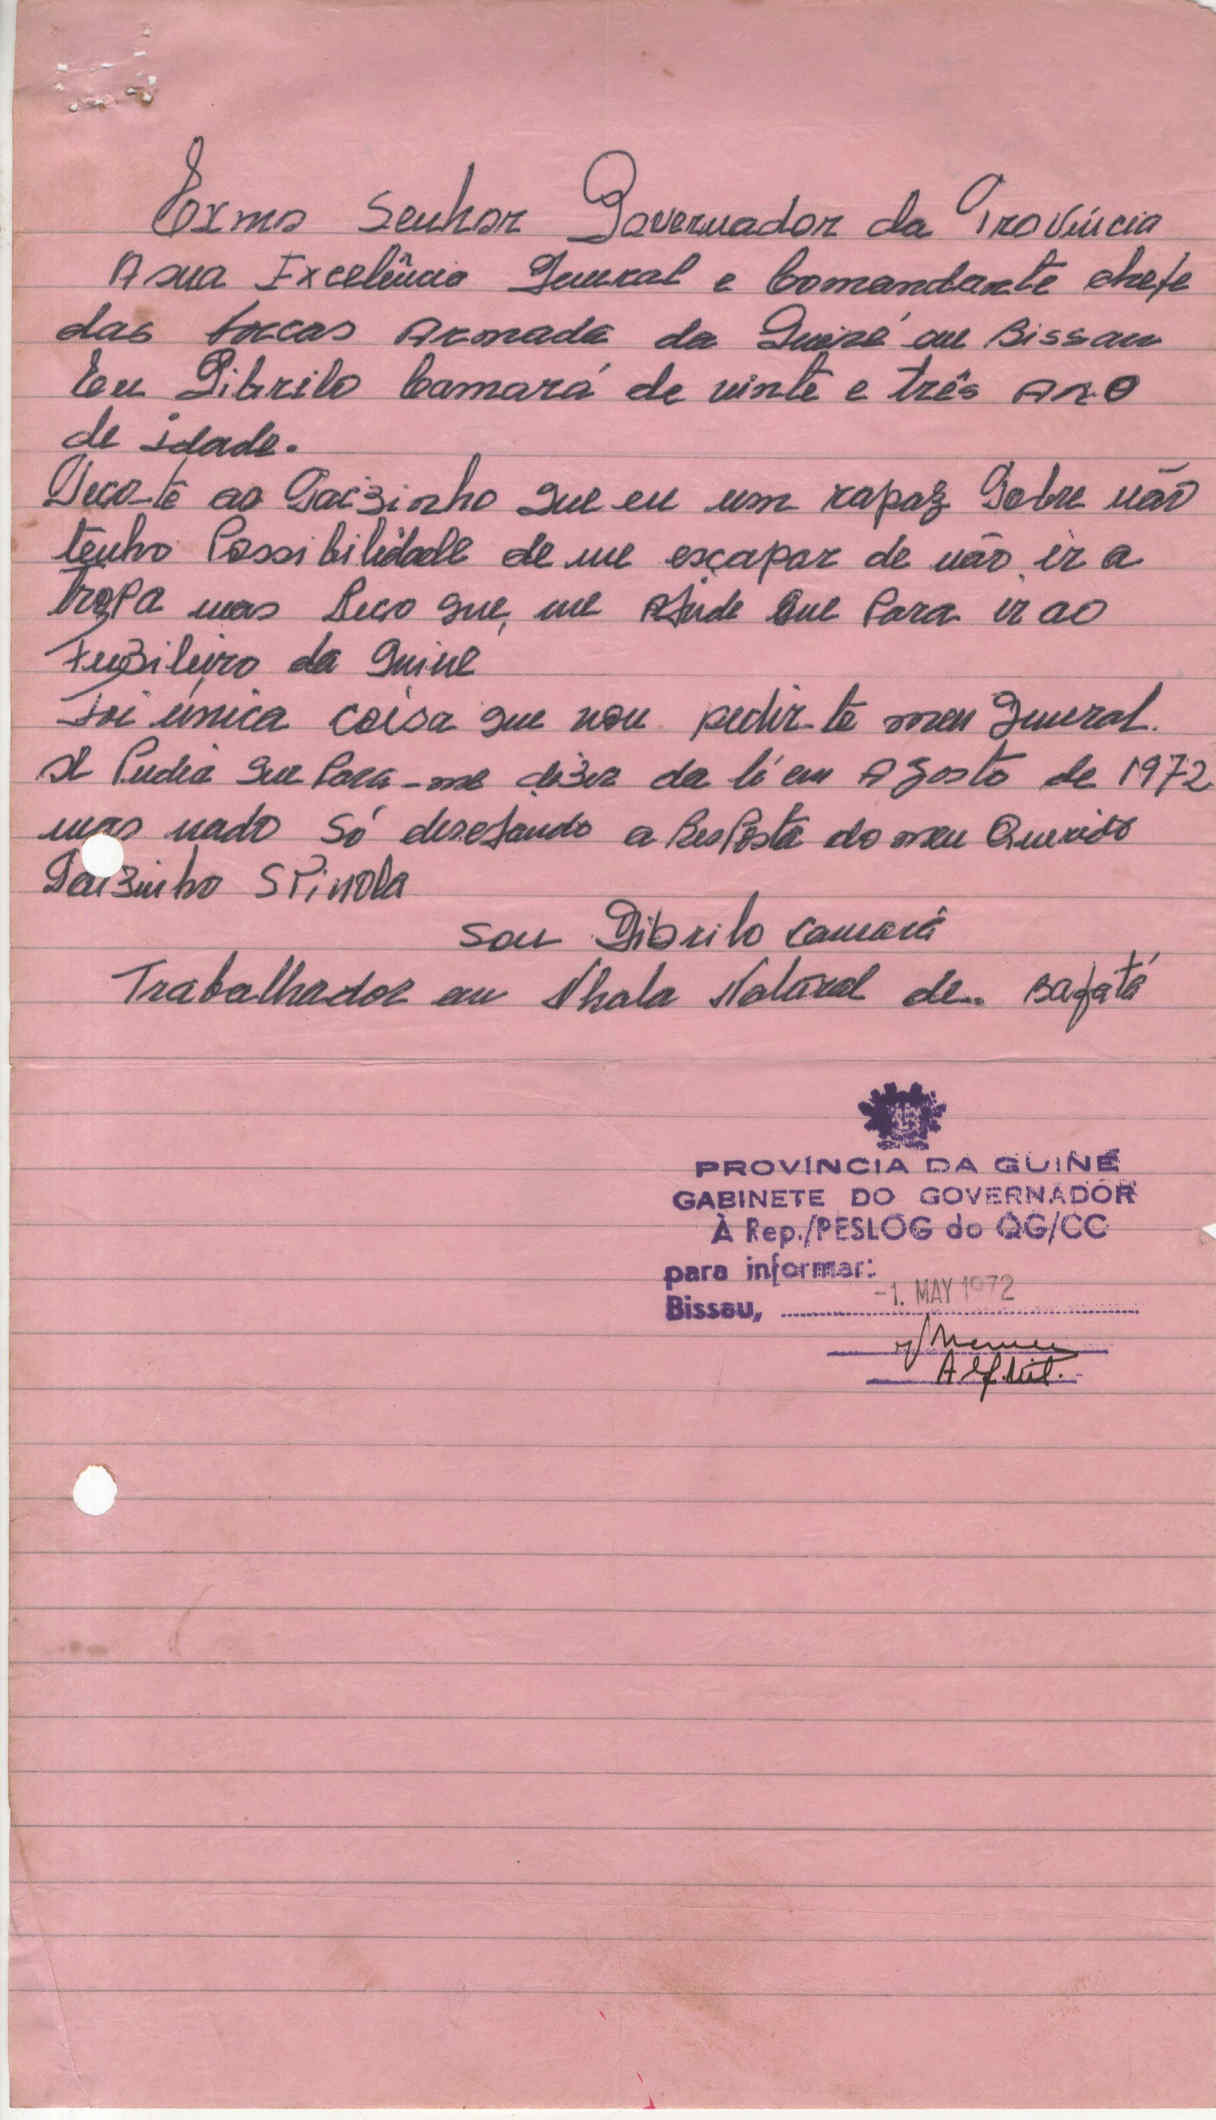 Exmo Senhor Governador da Província
A sua Excelência General e Comandante chefe
das forcas Armada da Guiné em Bissau
Eu Dibrilo Camará de vinte e três ano
de idade.
Peço-te ao Paizinho que eu um rapaz Pobre não
tenho Possibilidade de me escapar de não ir a
tropa mas Peço que, me Ajude que Para ir ao
Fuzileiro da guine
Foi única coisa que vou pedir-te meu general.
Pudia que Para-me da lá em Agosto de 1972
mas nado Só desejando a Resposta do meu Querido
Paizinho SPinola
Sou Dibrilo Camará
Trabalhador em Nhala Natural de. Bafatá
PROVÍNCIA DA GUINÉ
GABINETE DO GOVERNADOR
À Rep./PESLOG do QG/CC
para informar:
Bissau, -1. MAY 1972